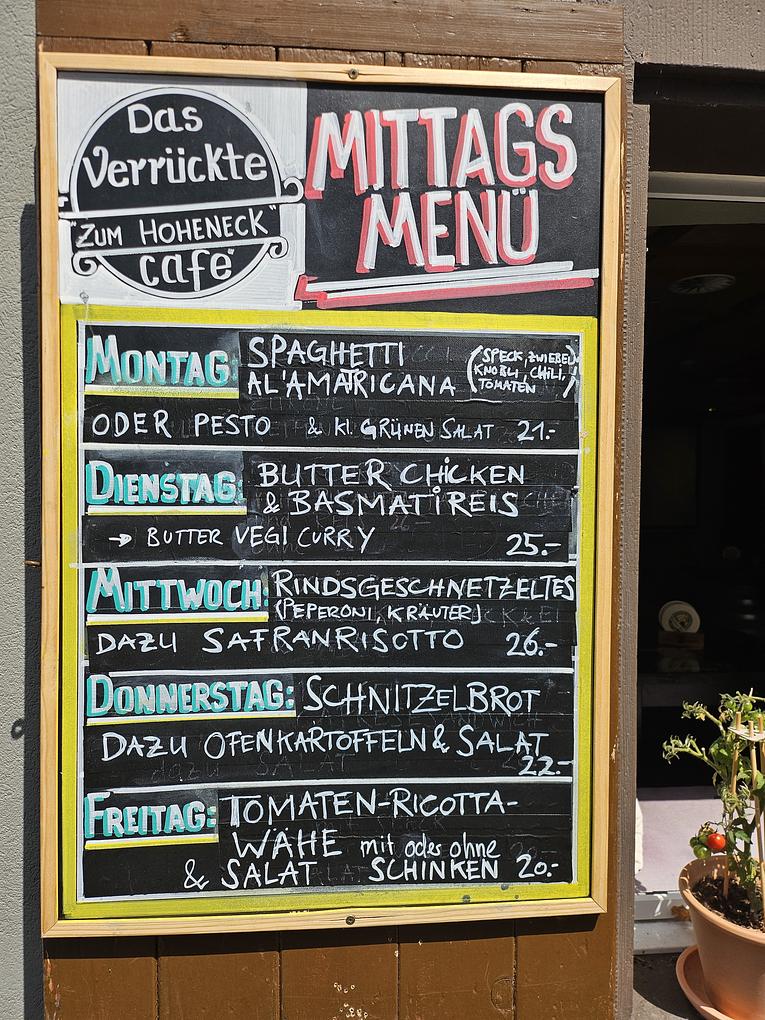 Das
Verrückte
"ZUM HOHENECK"
café
MITTAGS
MENÜ
MONTAG: SPAGHETTI
AL'AMATRICANA
(SPECK, ZWIEBELN
KNOBLI, CHILI,
TOMATEN)
ODER PESTO & Kl. GRÜNEN SALAT 21.-
DIENSTAG: BUTTER CHICKEN
& BASMATIREIS
→ BUTTER VEGI CURRY 25.-
MITTWOCH: RINDSGESCHNETZELTES
(PEPERONI, KRÄUTER)
DAZU SAFRANRISOTTO 26.-
DONNERSTAG: SCHNITZELBROT
DAZU OFENKARTOFFELN & SALAT
22.-
FREITAG: TOMATEN-RICOTTA-
WÄHE mit oder ohne
& SALAT SCHINKEN 20.-